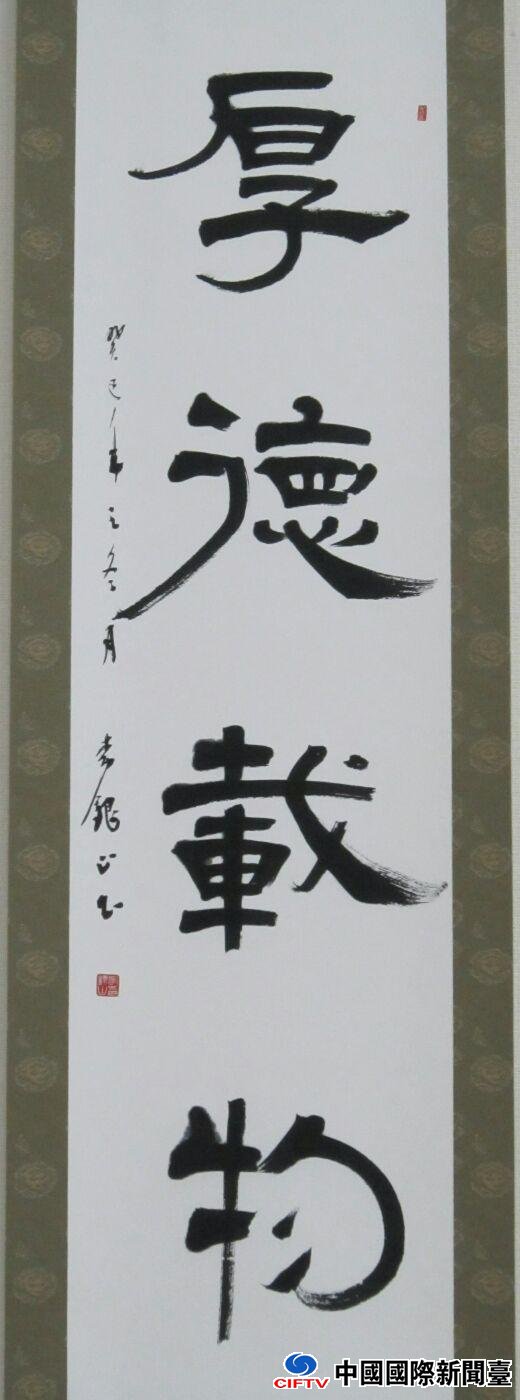 厚德載物
癸巳年之冬月
李銀山書
CIFTV 中國國際新聞臺